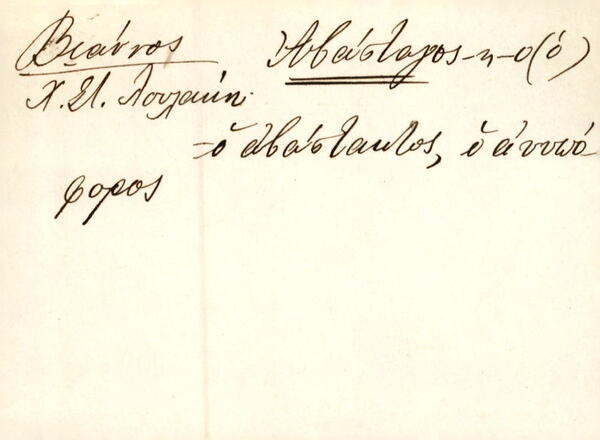 Βιάννος
Ἀβάσταγος -η -ο (ὁ)
Χ. Στ. Λουλάκη
= ὁ ἀβάστακτος, ὁ ἀνυπό
φορος